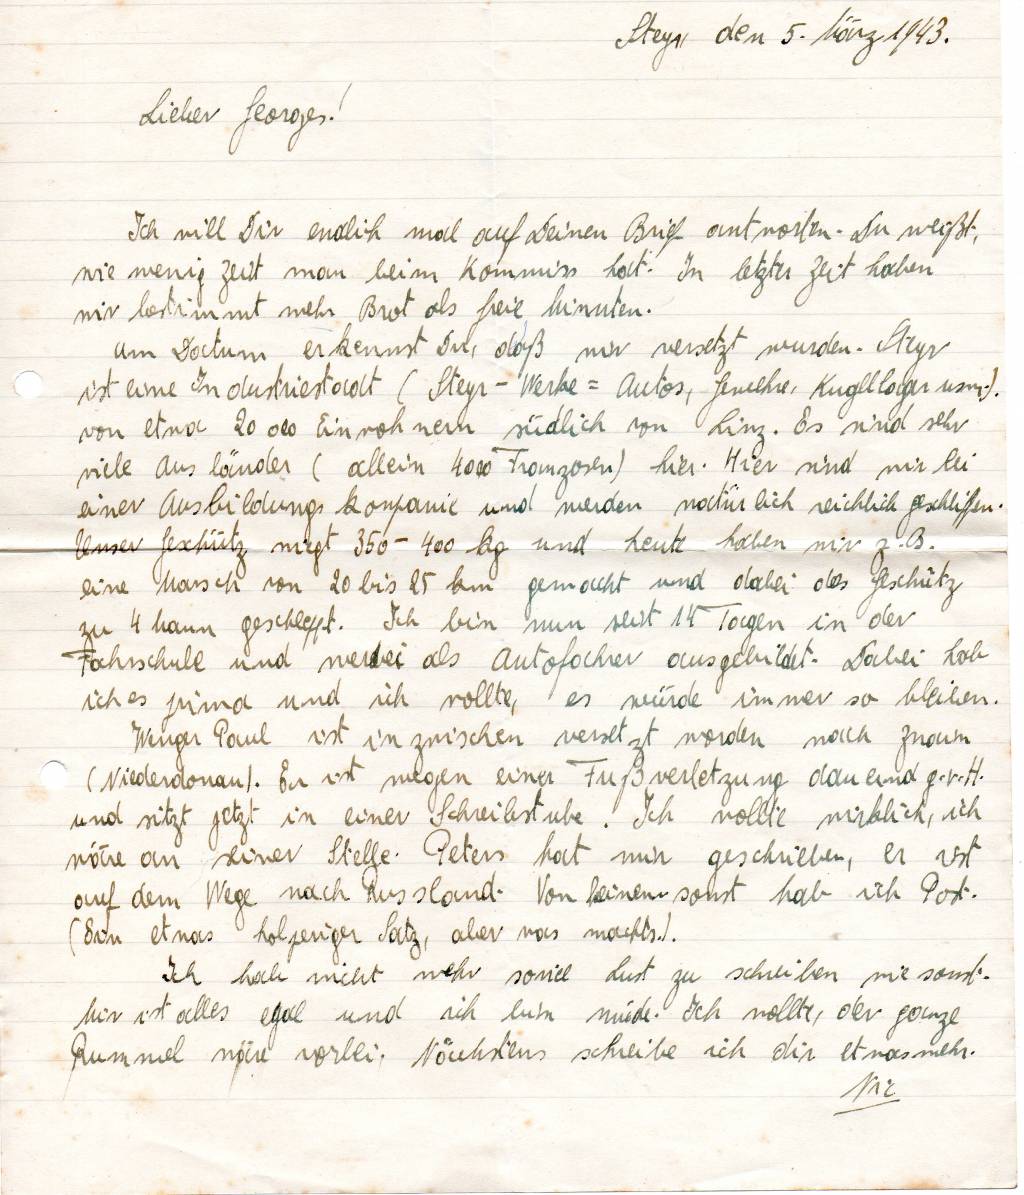 Steyr, den 5. März 1943.
Lieber Georges!
Ich will Dir endlich mal auf Deinen Brief antworten. Du weißt,
wie wenig Zeit man beim Kommiss hat. In letzter Zeit haben
wir bestimmt mehr Brot als freie Minuten.
Am Datum erkennst Du, daß wir versetzt wurden. Steyr
ist eine Industriestadt (Steyr-Werke = Autos, Gewehre, Kugellager usw.).
von etwa 20 000 Einwohnern südlich von Linz. Es sind sehr
viele Ausländer (allein 4000 Franzosen) hier. Hier sind wir bei
einer Ausbildungskompanie und werden natürlich reichlich geschliffen.
Unser Geschütz wiegt 350-400 kg und heute haben wir z.B.
eine Marsch von 20 bis 25 km gemacht und dabei das Geschütz
zu 4 Mann geschleppt. Ich bin nun seit 14 Tagen in der
Fahrschule und werde als Autofahrer ausgebildet. Dabei hab
ich es prima und ich wollte, es würde immer so bleiben.
Winger Paul ist inzwischen versetzt worden nach Znaim
(Niederdonau). Er ist wegen einer Fußverletzung dauernd g.v.H.
und sitzt jetzt in einer Schreibstube. Ich wollte wirklich, ich
wäre an seiner Stelle. Peters hat mir geschrieben, er ist
auf dem Wege nach Russland. Von keinem sonst hab ich Post.
(Ein etwas holperiger Satz, aber was machts.).
Ich hab nicht mehr soviel Lust zu schreiben wie sonst.
Mir ist alles egal und ich bin müde. Ich wollte, der ganze
Rummel wäre vorbei. Nächstens schreibe ich dir etwas mehr.
Nic